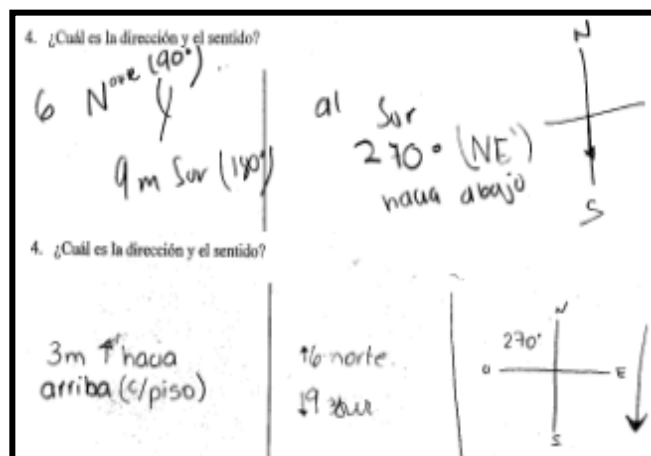 4. ¿Cuál es la dirección y el sentido?
6 Norte (90°)
y
9 m Sur (180°)
al Sur
270° (NE)
hacia abajo
N
S
4. ¿Cuál es la dirección y el sentido?
3m ↑ hacia
arriba (c/piso)
↑6 norte
↓9 sur
270°
N
O
E
S